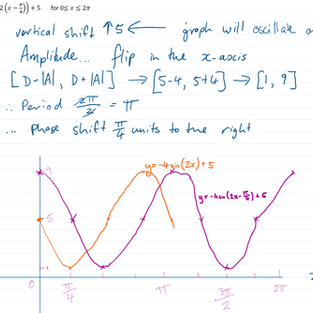 2(x − π/4)) + 5 for 0 ≤ x ≤ 2π
vertical shift ↑5 ← graph will oscillate
Amplitude... flip in the x-axis
[D-|A|, D+|A|] → [5-4, 5+4] → [1, 9]
∴ Period 2π/2 = π
... phase shift π/4 units to the right
y=-4sin(2x)+5
9
y=-4sin(2x-π/2)+5
5
1
0 π/4 π 3π/2 2π